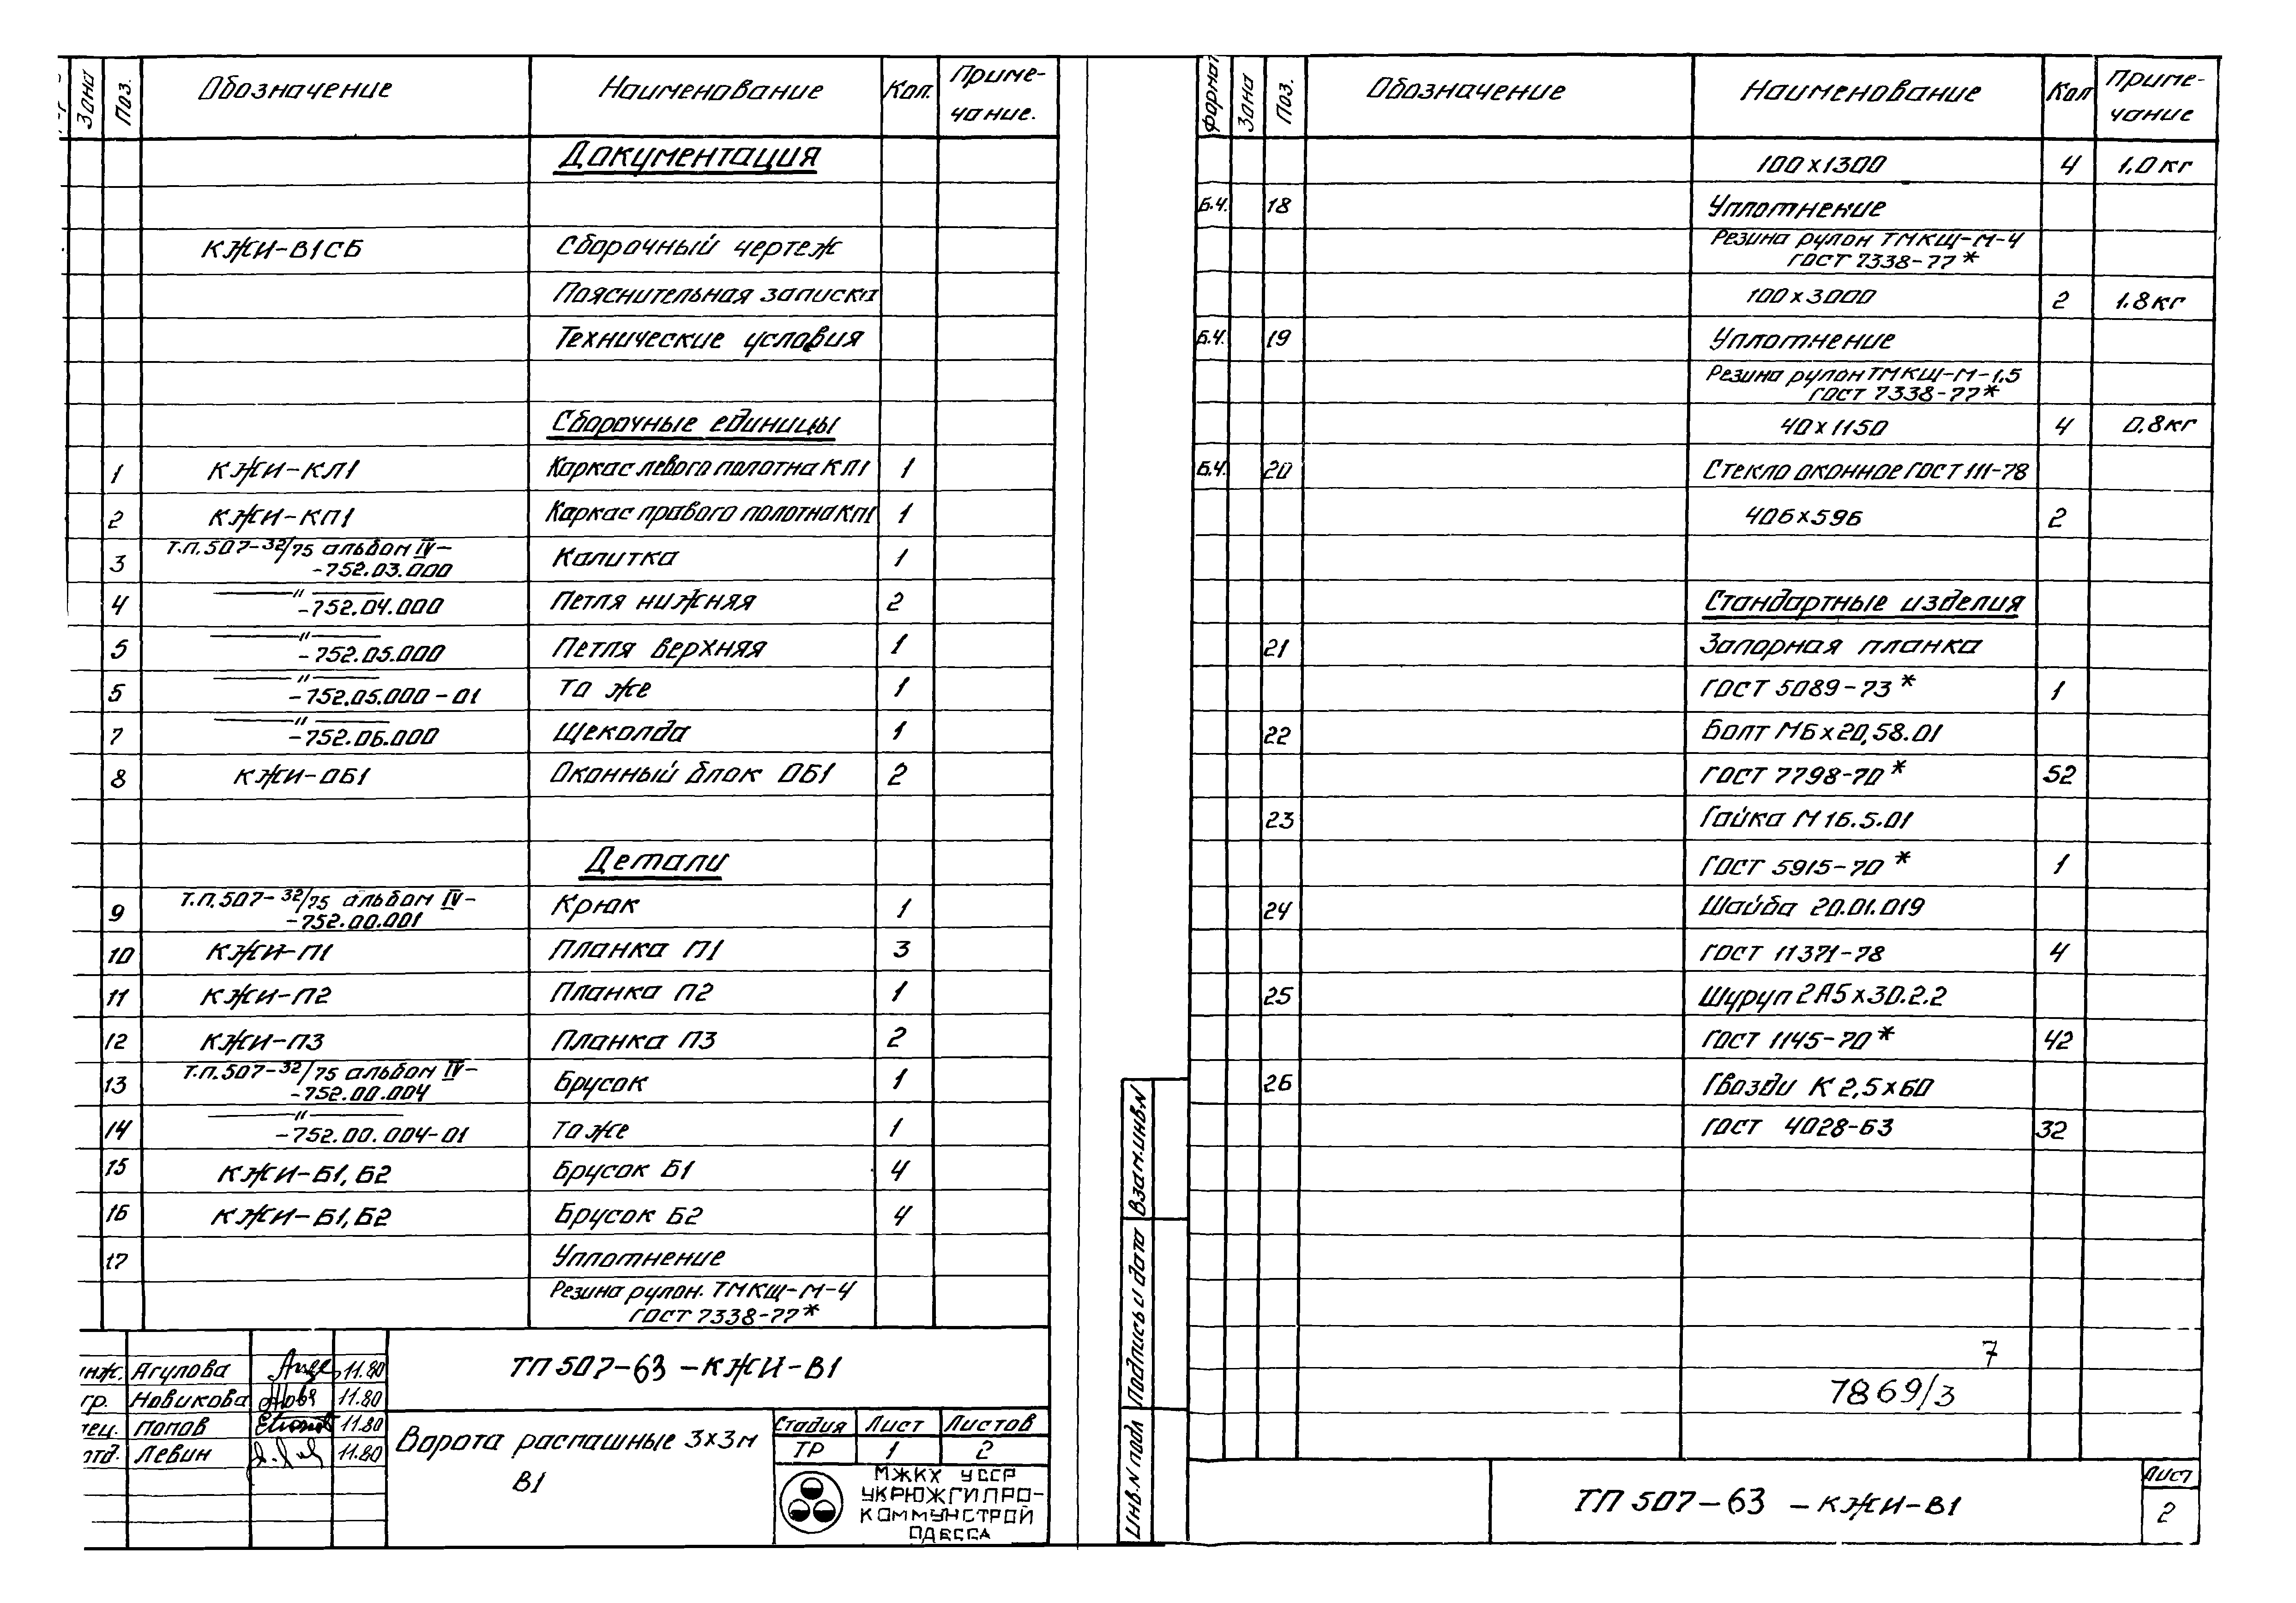 Зона Поз. Обозначение Наименование Кол. Приме-
чание.
Документация
КЖИ-В1СБ Сборочный чертеж
Пояснительная записка
Технические условия
Сборочные единицы
1 КЖИ-КЛ1 Каркас левого полотна КЛ1 1
2 КЖИ-КП1 Каркас правого полотна КП1 1
3 Т.П.507-32/75 альбом IV- Калитка 1
-752.03.000
4 —"— -752.04.000 Петля нижняя 2
5 —"— -752.05.000 Петля верхняя 1
5 —"— -752.05.000-01 То же 1
7 —"— -752.06.000 Щеколда 1
8 КЖИ-ОБ1 Оконный блок ОБ1 2
Детали
9 Т.П.507-32/75 альбом IV- Крюк 1
-752.00.001
10 КЖИ-П1 Планка П1 3
11 КЖИ-П2 Планка П2 1
12 КЖИ-П3 Планка П3 2
13 Т.П.507-32/75 альбом IV- Брусок 1
-752.00.004
14 —"— -752.00.004-01 То же 1
15 КЖИ-Б1,Б2 Брусок Б1 4
16 КЖИ-Б1,Б2 Брусок Б2 4
17 Уплотнение
Резина рулон. ТМКЩ-М-4
ГОСТ 7338-77*
инж. Агулова 11.80
гр. Новикова 11.80
пец. Попов 11.80
отд. Левин 11.80
ТП 507-63 -КЖИ-В1
Ворота распашные 3х3м
В1
Стадия Лист Листов
ТР 1 2
МЖКХ УССР
УКРЮЖГИПРО-
КОММУНСТРОЙ
ОДЕССА
Формат Зона Поз. Обозначение Наименование Кол Приме-
чание
100х1300 4 1.0кг
Б.Ч. 18 Уплотнение
Резина рулон ТМКЩ-М-4
ГОСТ 7338-77*
100х3000 2 1.8кг
Б.Ч. 19 Уплотнение
Резина рулон ТМКЩ-М-1.5
ГОСТ 7338-77*
40х1150 4 0.8кг
Б.Ч. 20 Стекло оконное ГОСТ 111-78
406х596 2
Стандартные изделия
21 Запорная планка
ГОСТ 5089-73* 1
22 Болт М6х20,58.01
ГОСТ 7798-70* 52
23 Гайка М16.5.01
ГОСТ 5915-70* 1
24 Шайба 20.01.019
ГОСТ 11371-78 4
25 Шуруп 2А5х30.2.2
ГОСТ 1145-70* 42
26 Гвозди К 2,5х60
ГОСТ 4028-63 32
7
7869/3
Инв.N подл Подпись и дата Взам.инв.N
ТП 507-63 -КЖИ-В1
Лист
2